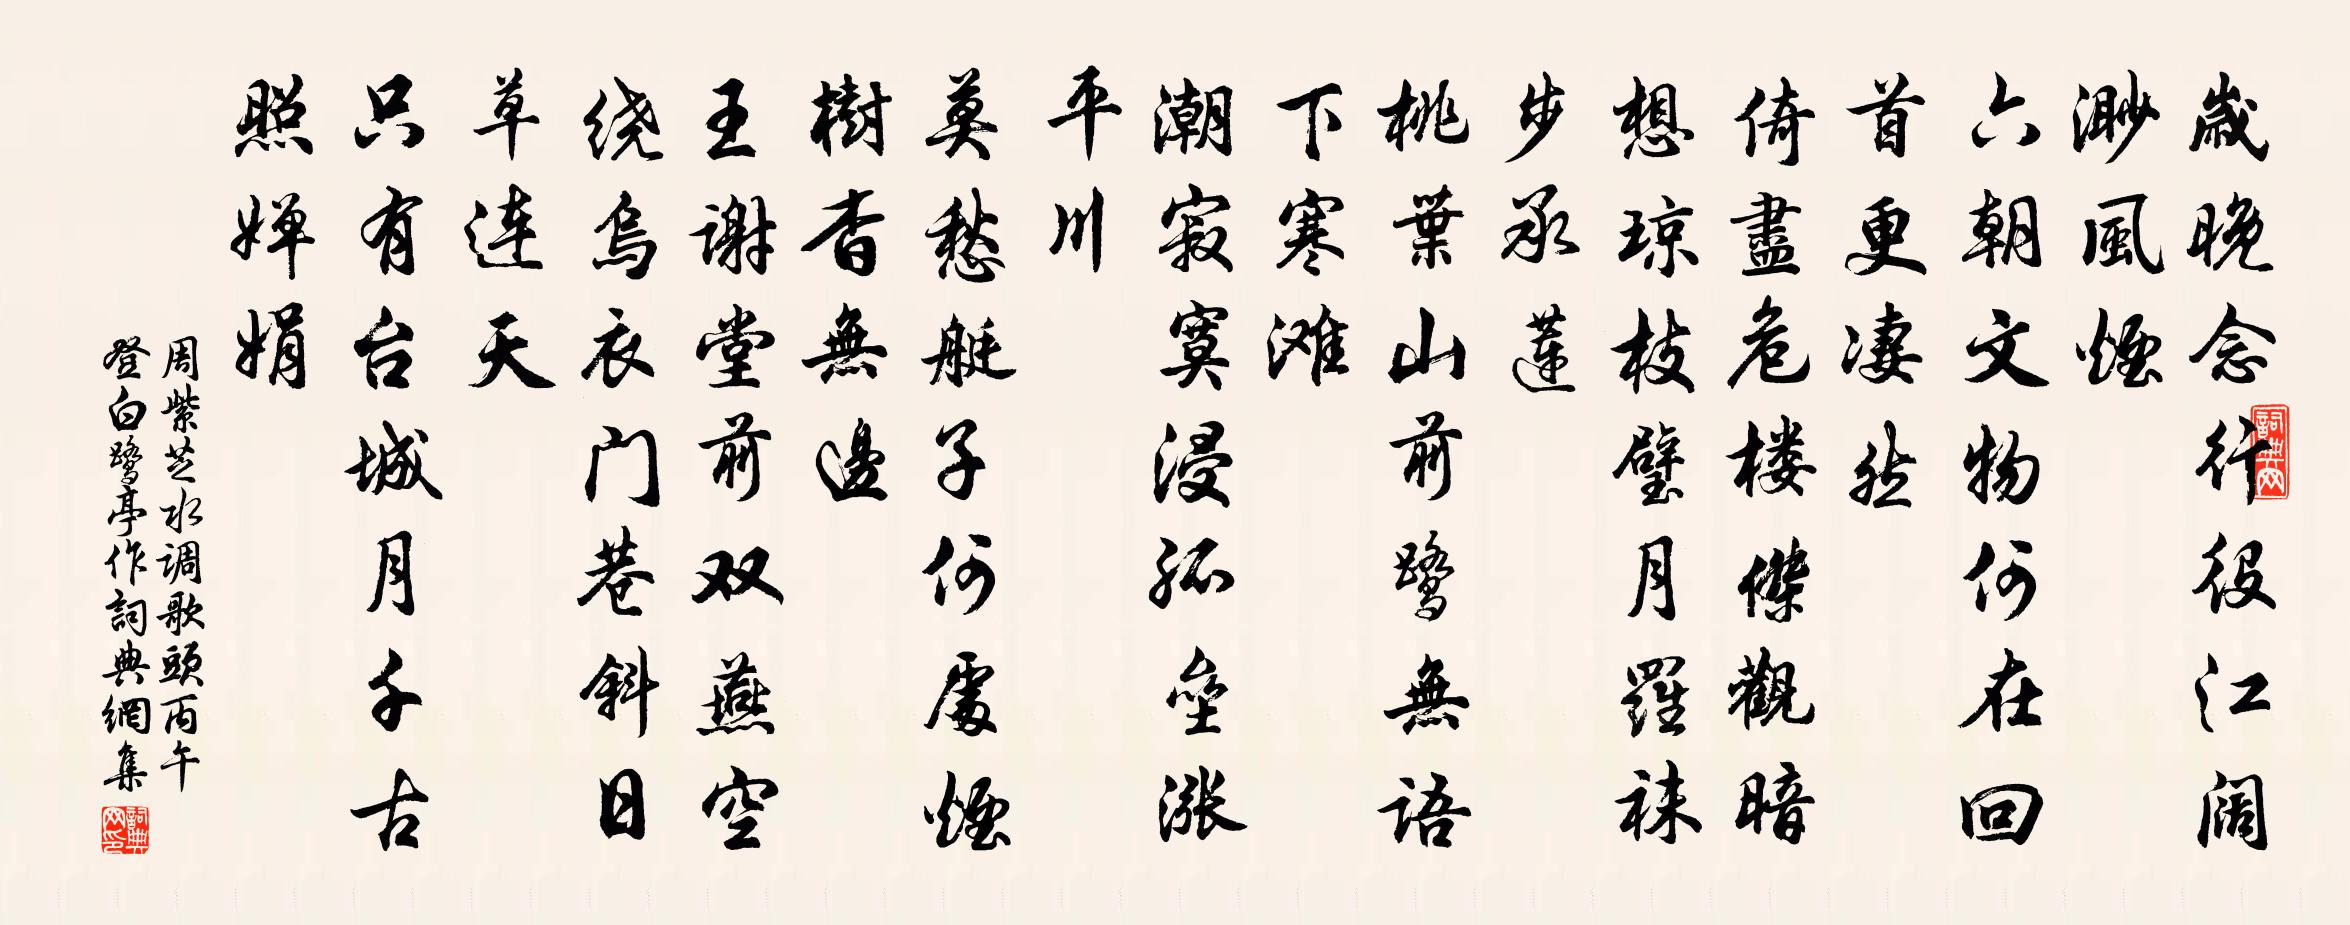 歲晚念行役江闊
渺風煙
六朝文物何在回
首更凄然
倚盡危楼傑觀暗
想琼枝璧月羅袜
步承蓮
桃葉山前鹭無語
下寒滩
潮寂寞浸孤壘漲
平川
莫愁艇子何處煙
樹杳無邊
王謝堂前双燕空
绕烏衣门巷斜日
草連天
只有台城月千古
照婵娟
周紫芝水调歌頭丙午
登白鹭亭作詞典網集
詞典网
詞典网印